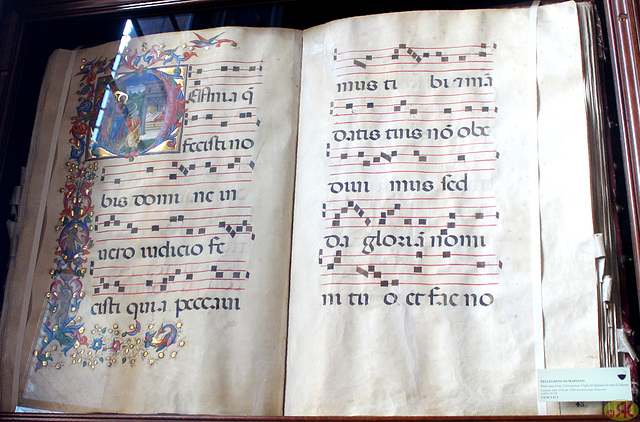 ia q̄
fecisti no
bis domi ne in
uero iudicio fe
cisti quia peccaui
mus ti bi ⁊ mā
datis tuis nō obe
diui mus sed
da gloriā nomi
ni tu o et fac no
PELLEGRINO DI MARIANO